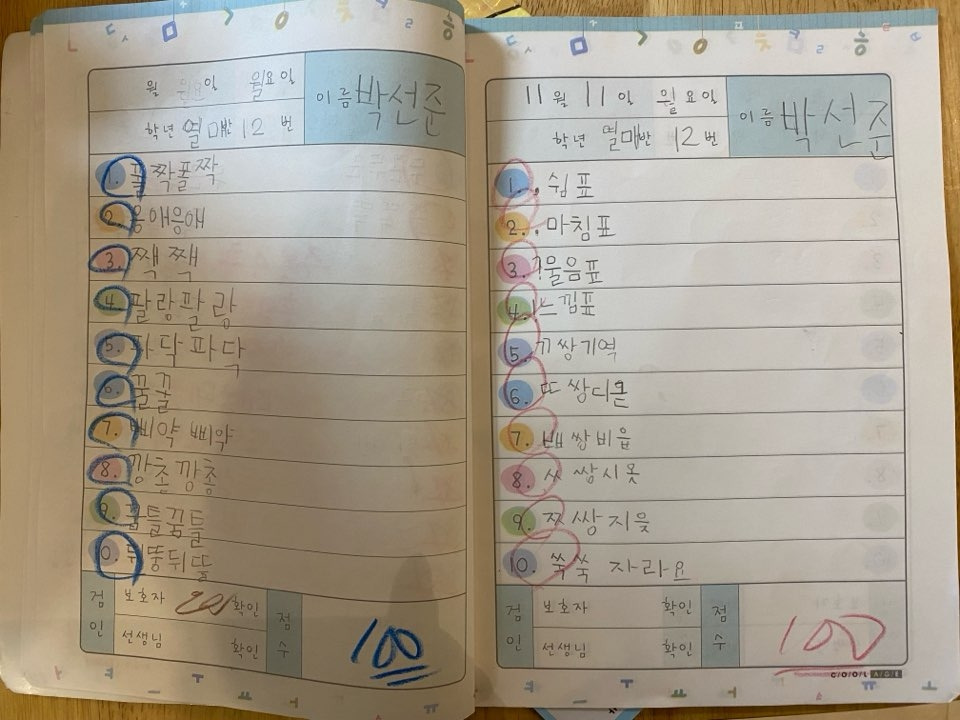 월 일 월요일
이름 박선준
학년 열매반 12 번
1. 폴짝폴짝
2. 응애응애
3. 짹짹
4. 팔랑팔랑
5. 파닥파닥
6. 꿀꿀
7. 삐약 삐약
8. 깡총깡총
9. 꿈틀꿈틀
10. 뒤뚱뒤뚱
점인
보호자 확인
선생님 확인
점수
100
11 월 11 일 월요일
이름 박선준
학년 열매반 12 번
1. , 쉼표
2. . 마침표
3. ?물음표
4. !느낌표
5. ㄲ쌍기역
6. ㄸ쌍디귿
7. ㅃ쌍비읍
8. ㅆ쌍시옷
9. ㅉ쌍지읒
10. 쑥쑥 자라요
점인
보호자 확인
선생님 확인
점수
100
COOL AGE